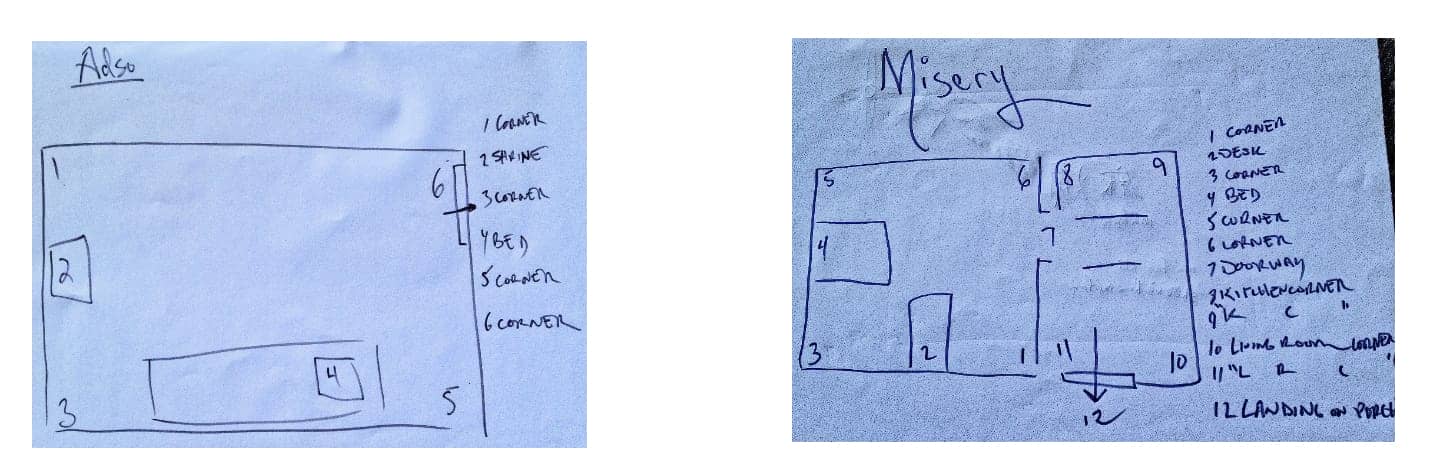 Adso
1 CORNER
2 SHRINE
3 CORNER
4 BED
5 CORNER
6 CORNER
1
6
2
4
3
5
Misery
1 CORNER
2 DESK
3 CORNER
4 BED
5 CORNER
6 CORNER
7 DOORWAY
8 KITCHEN CORNER
9 "K C "
10 LIVING ROOM CORNER
11 "L R C "
12 LANDING ON PORCH
5
6
8
9
4
7
3
2
1
11
10
12